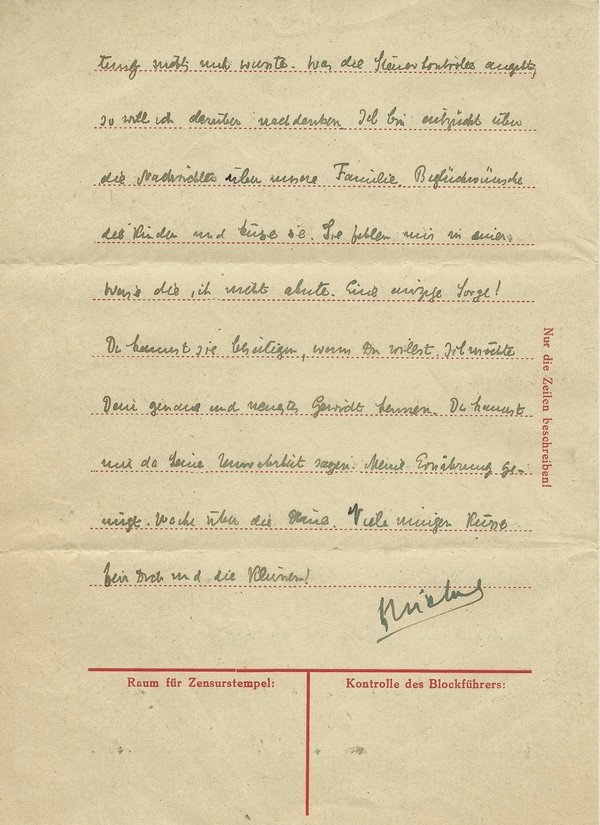 nichts mich wusste. Was die Steuerkontrolle angeht,
so will ich darüber nachdenken. Ich bin entzückt über
die Nachrichten über unsere Familie. Beglückwünsche
die Kinder und küsse sie. Sie fehlen mir in einer
Weise die, ich nicht ahnte. Eine einzige Sorge!
Du kannst sie beseitigen, wenn Du willst. Ich möchte
Dein genaue und neustes Gewicht kennen. Du kannst
mir da keine Unwahrheit sagen. Meine Ernährung ge-
nügt. Wache über die Deine. Viele innigen Küsse
für Dich und die Kleinen!
Nur die Zeilen beschreiben!
Raum für Zensurstempel:
Kontrolle des Blockführers: